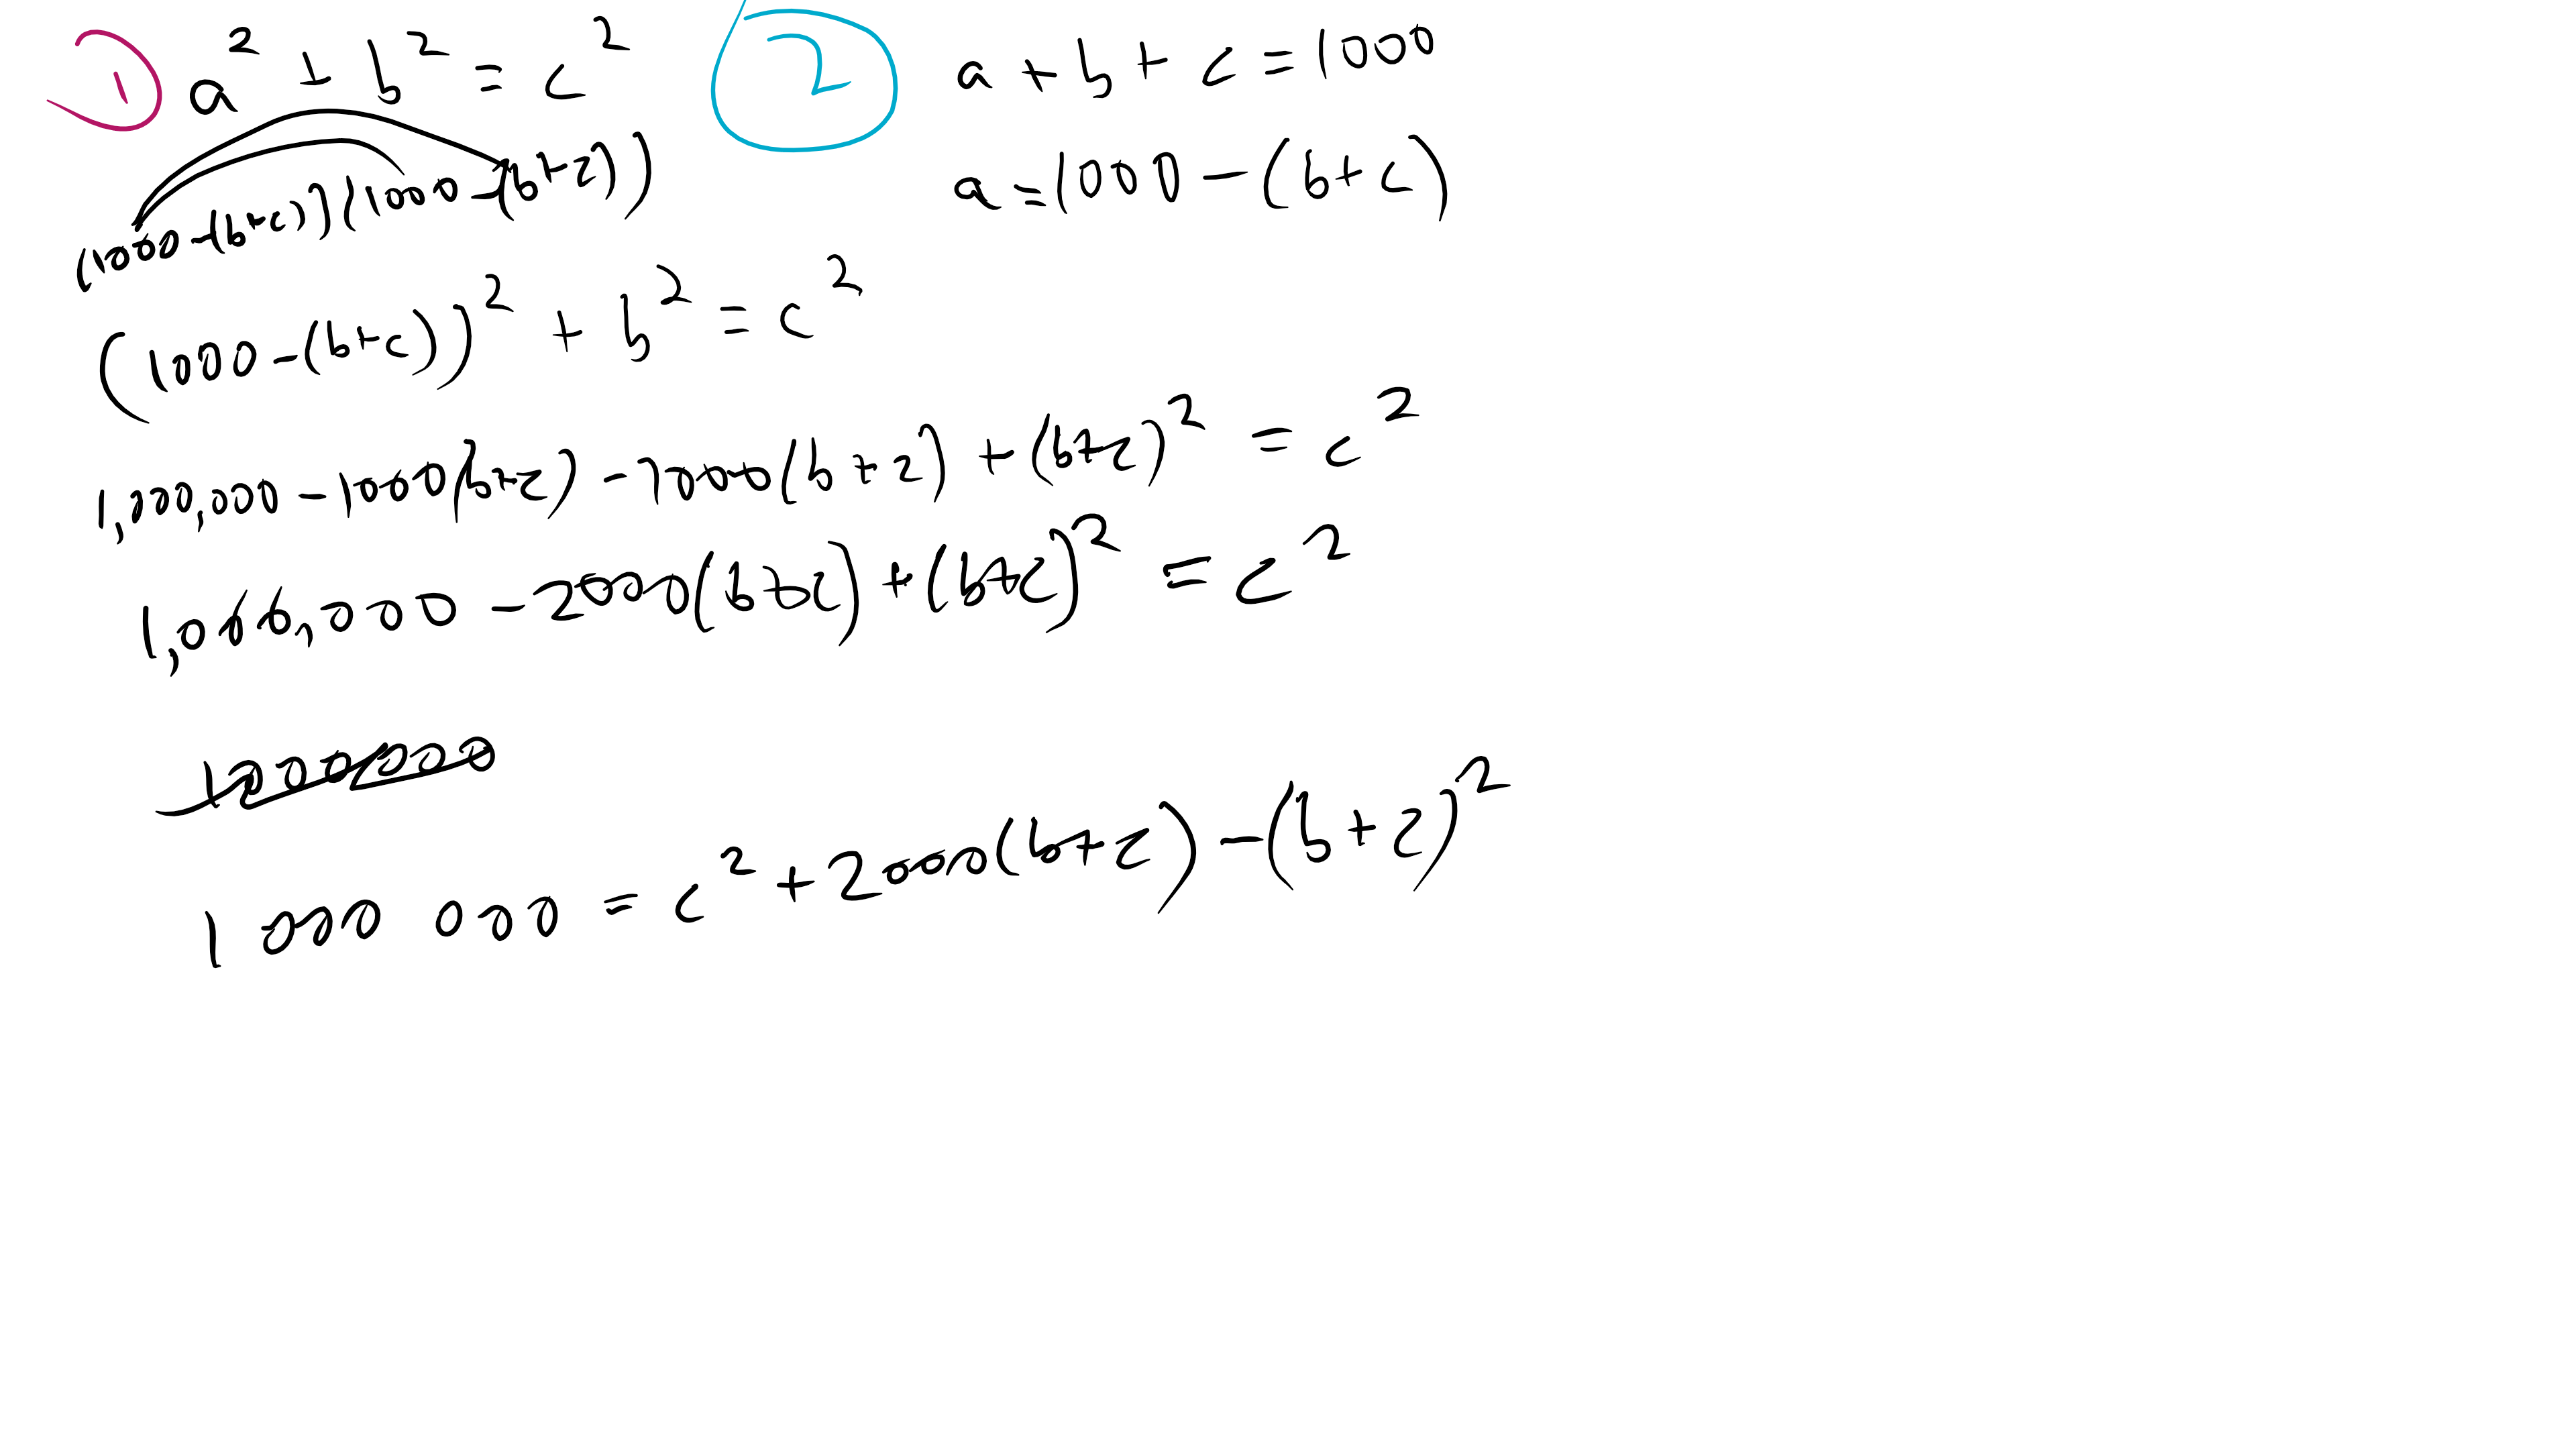 ① a² + b² = c²
② a + b + c = 1000
a = 1000 - (b + c)
(1000 - (b+c))(1000 - (b+c))
(1000 - (b+c))² + b² = c²
1,000,000 - 1000(b+c) - 1000(b+c) + (b+c)² = c²
1,000,000 - 2000(b+c) + (b+c)² = c²
1000000
1 000 000 = c² + 2000(b+c) - (b+c)²